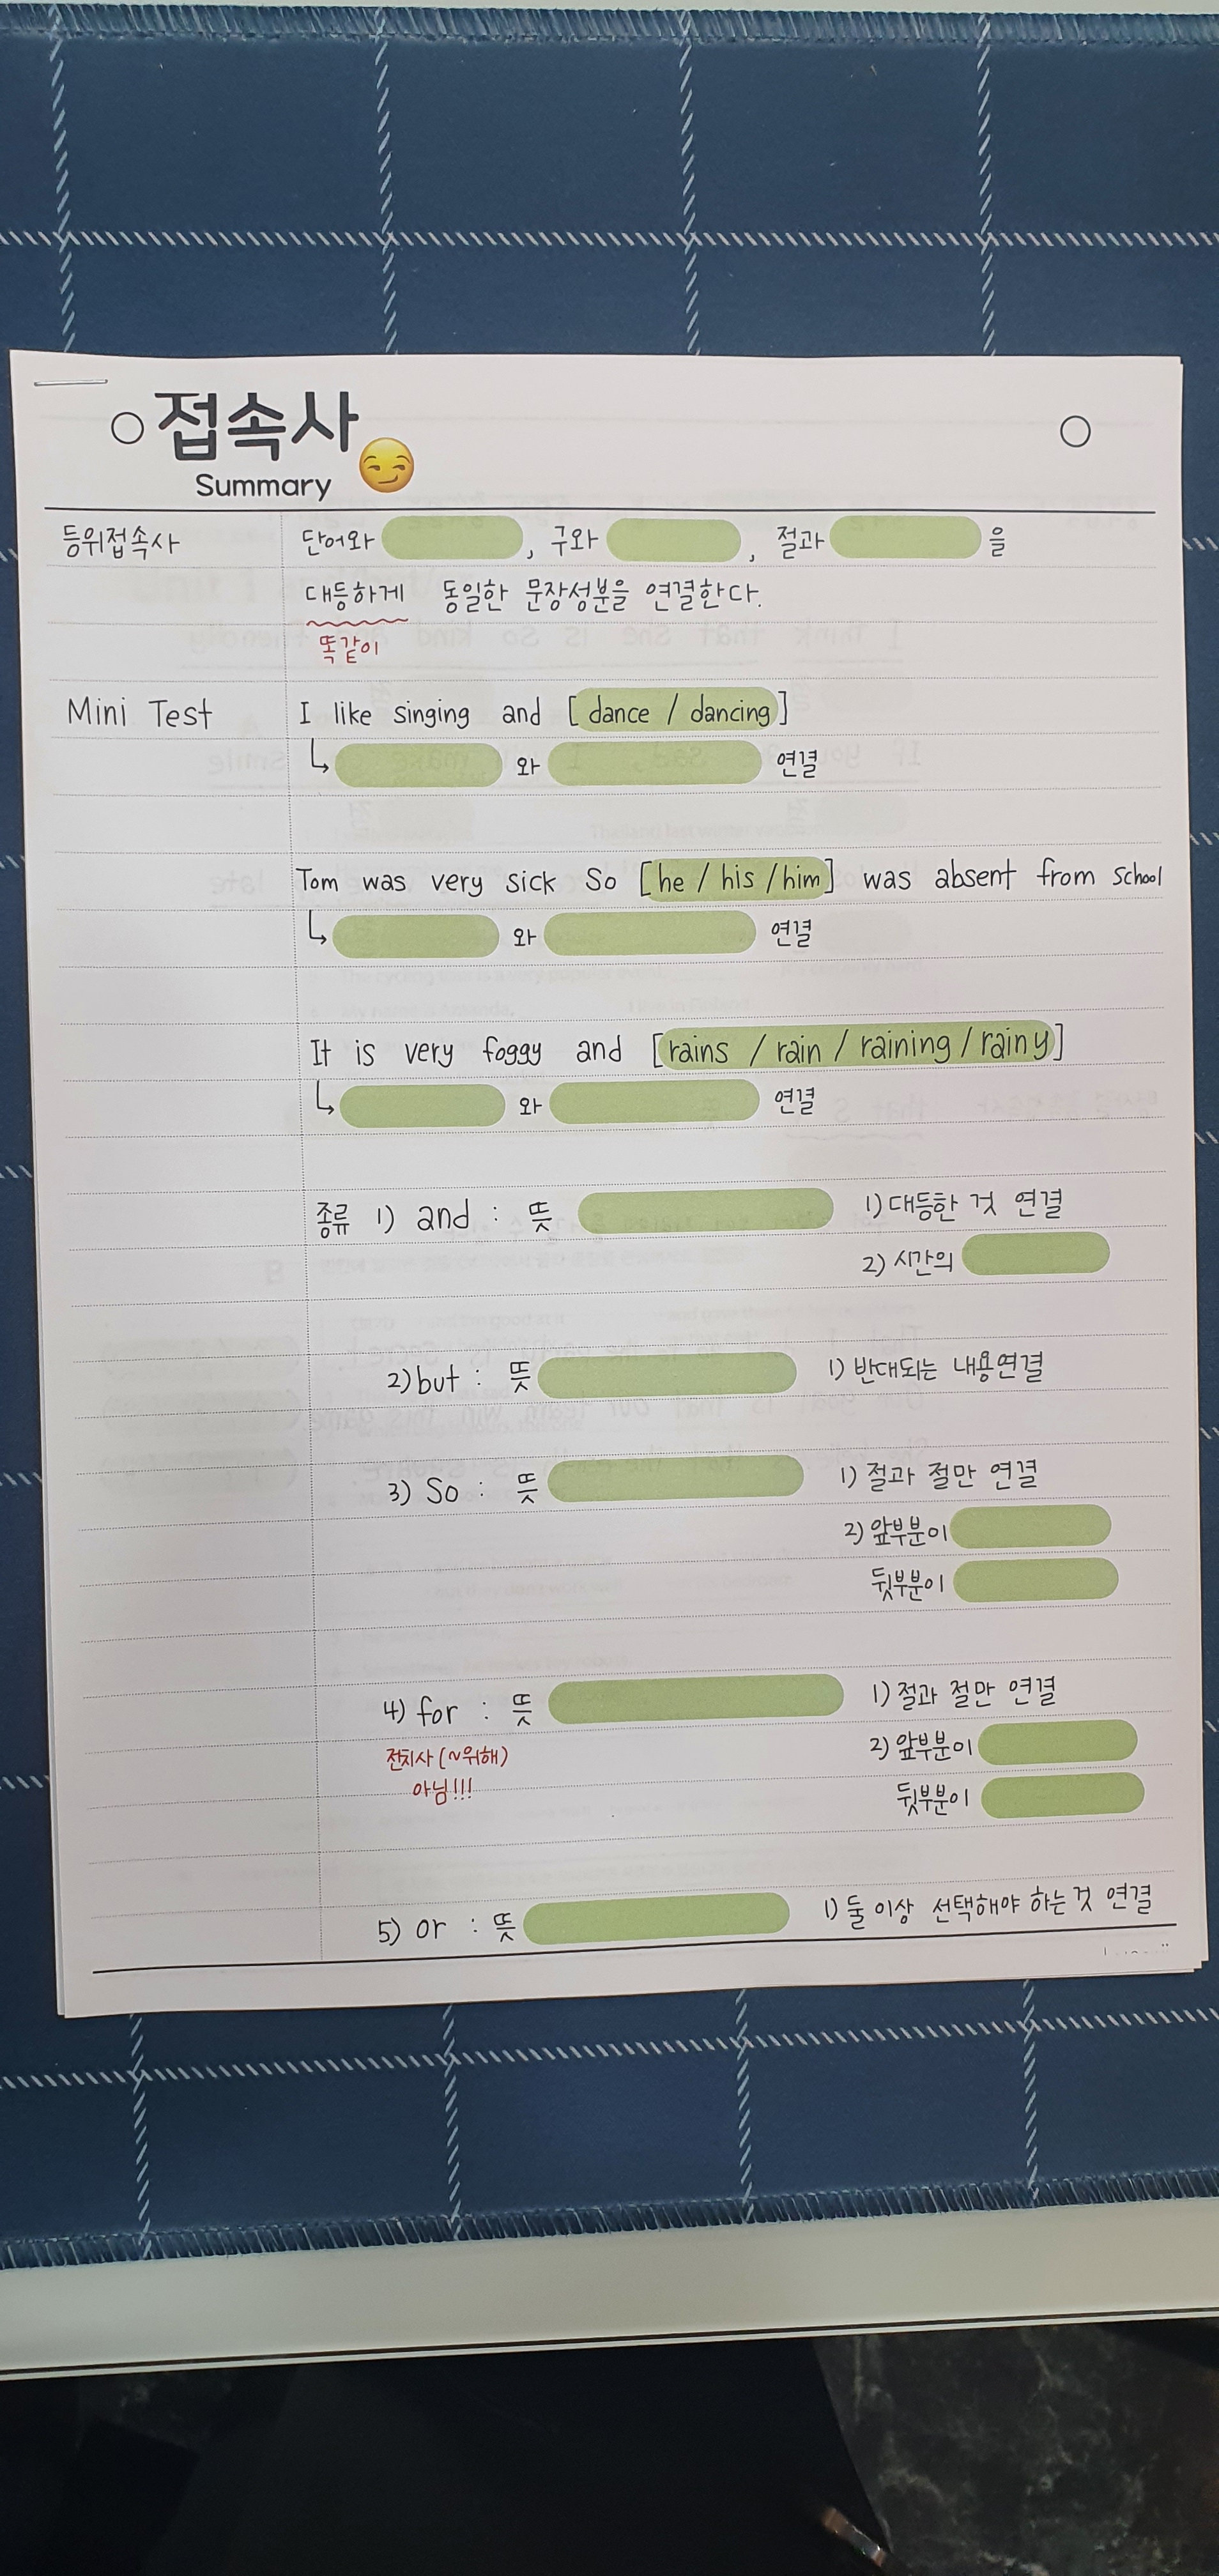 접속사
Summary
등위접속사 단어와 , 구와 , 절과 을
대등하게 동일한 문장성분을 연결한다.
똑같이
Mini Test I like singing and [dance / dancing]
↳ 와 연결
Tom was very sick So [he / his / him] was absent from school
↳ 와 연결
It is very foggy and [rains / rain / raining / rainy]
↳ 와 연결
종류 1) and : 뜻 1) 대등한 것 연결
2) 시간의
2) but : 뜻 1) 반대되는 내용연결
3) So : 뜻 1) 절과 절만 연결
2) 앞부분이
뒷부분이
4) for : 뜻 1) 절과 절만 연결
전치사 (~위해) 2) 앞부분이
아님!!! 뒷부분이
5) or : 뜻 1) 둘 이상 선택해야 하는 것 연결